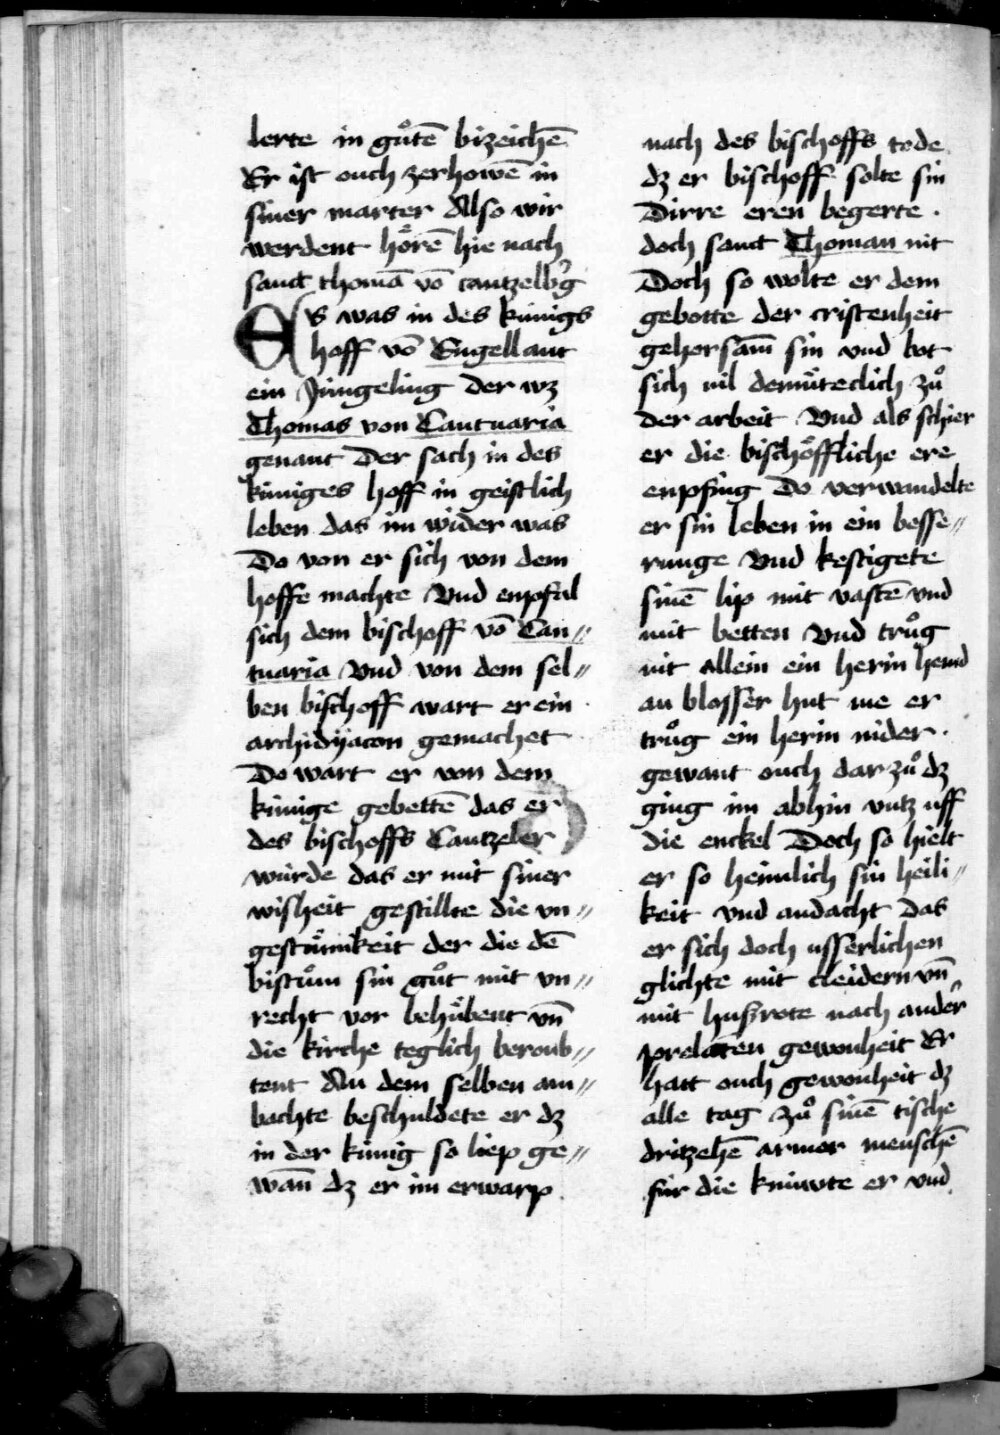 lerte in gůtē bizeichē
Er ist ouch zerhowē in
siner marter Also wir
werdent hoͤrē hie nach
sanct thomā vō cantzelbg̾
ES was in des kúnigs
hoff vō Engellant
ein Jüngeling der wz
Thomas von Cantuaria
genant Der sach in des
kúniges hoff in geistlich
leben das im wider was
Do von er sich von dem
hoffe machte Vnd enpfal
sich dem bischoff vō Can〃
tuaria Vnd von dem sel〃
ben bischoff wart er ein
archidyacon gemachet
Do wart er von dem
kúnige gebettē das er
des bischoffs Cantzeler
wúrde das er mit siner
wisheit gestillte die vn〃
gestuͤmikeit der die dē
bistům sin gůt mit vn〃
recht vor behuͤbent vn̄
die kirche teglich beroub〃
tent An dem selben am〃
bachte beschuldete er dz
in der kúnig so liep ge〃
wan̄ dz er im erwarp
nach des bischoffs tode
dz er bischoff solte sin
Dirre eren begerte .
doch sanct Thoman nit
Doch so wolte er dem
gebotte der cristenheit
gehorsam̄ sin vnd bot
sich vil demuͤteclich zů
der arbeit Vnd als schier
er die bischoͤffliche ere
enpfing Do verwandelte
er sin leben in ein besse〃
runge Vnd kestigete
sinē lip mit vastē vnd
mit betten Vnd trůg
nit allein ein herin hemd
an blosser hut me er
trůg ein herin nider .
gewant ouch dar zů dz
ging im abhin vntz uff
die enckel Doch so hielt
er so heimlich sin heili〃
keit vnd andacht Das
er sich doch usserlichen
glichte mit cleidern vn̄
mit hußrote nach ander
prelaten gewonheit Er
hatt ouch gewonheit dz
alle tag zů sinē tische
dritzehē armer menschē
für die knúwte er vnd